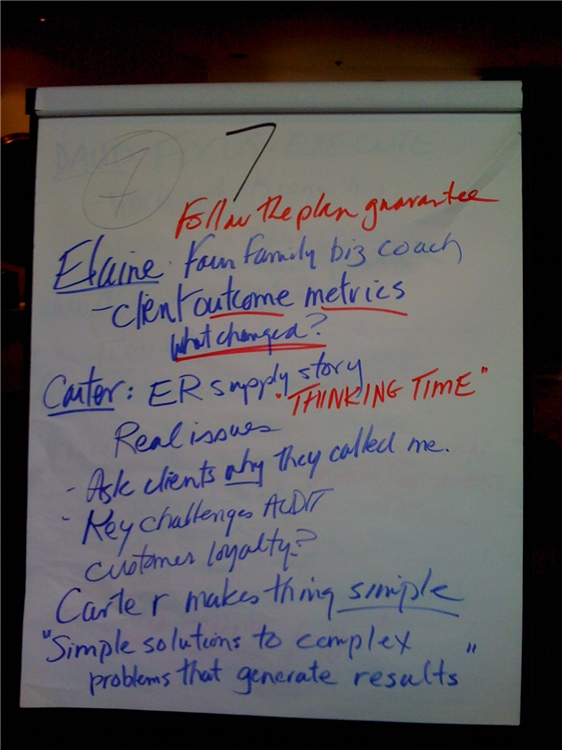 7
7
Follow the plan guarantee
Elaine. Farm Family biz coach
- client outcome metrics
What changed?
Carter: ER supply story
"THINKING TIME"
Real issues
- Ask clients why they called me.
- Key challenges AUDIT
customer loyalty?
Carter makes thing simple
"Simple solutions to complex
problems that generate results"